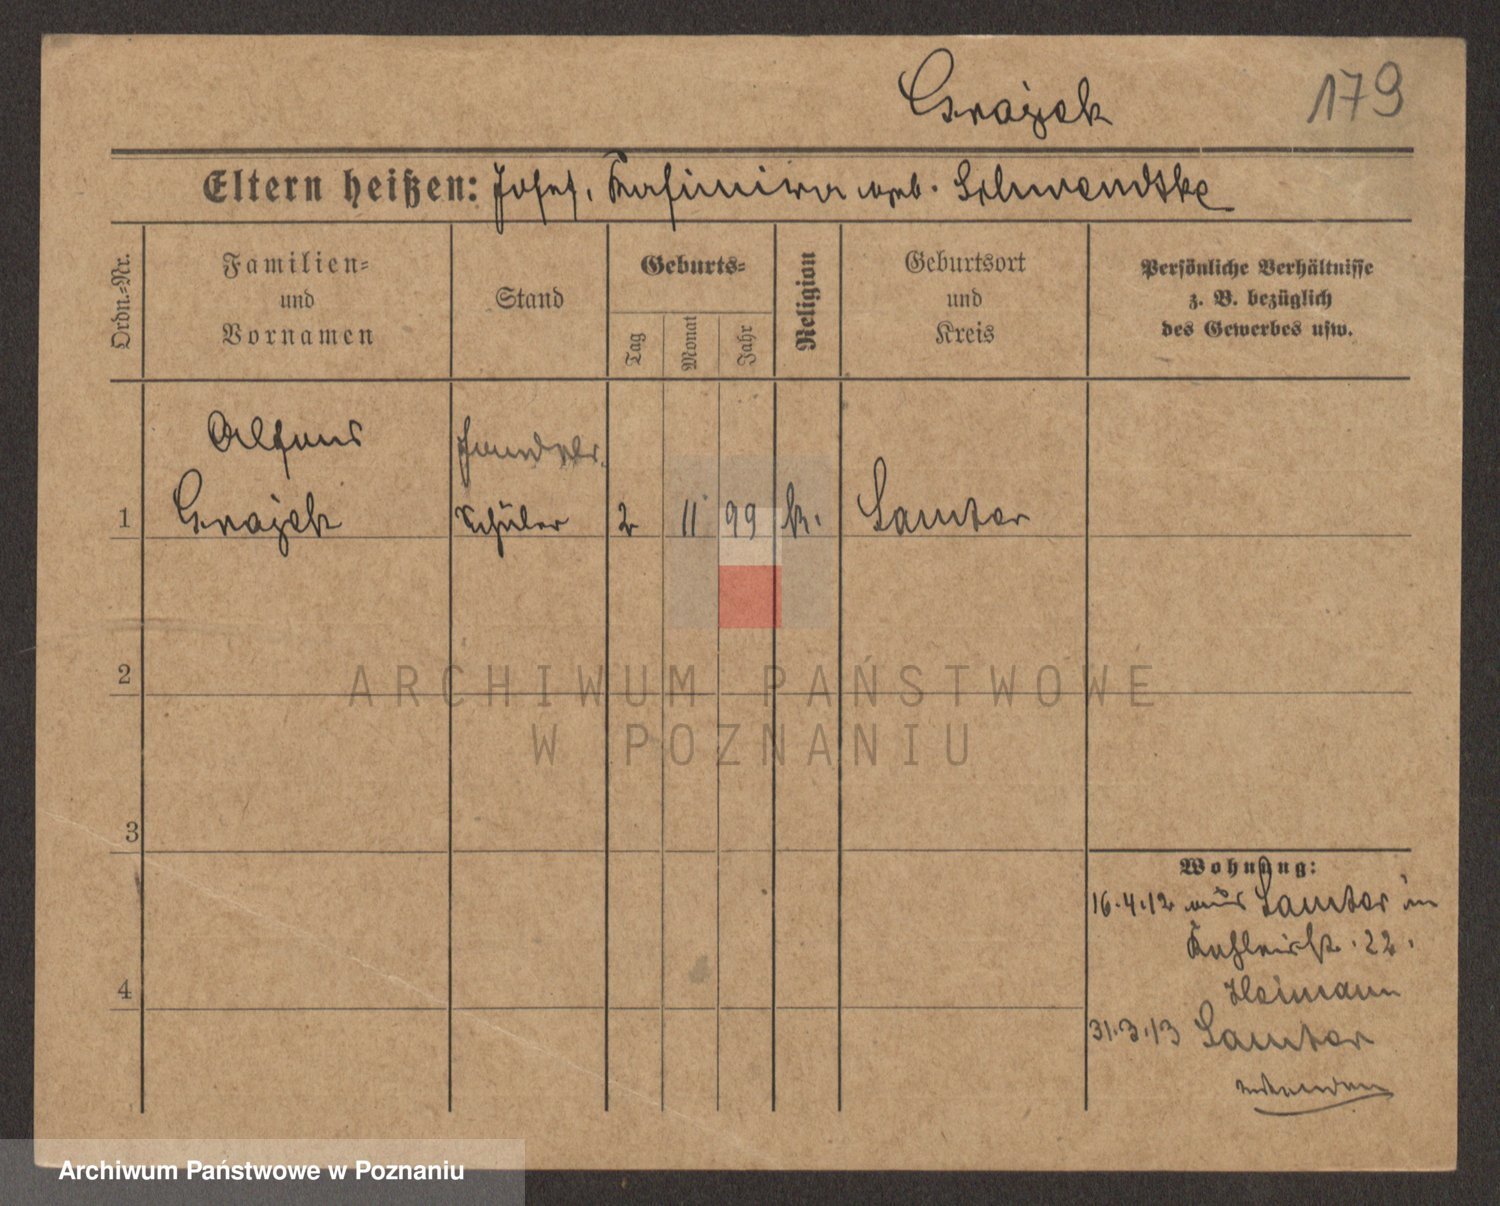 Grajek 179
Eltern heißen: Josef, Kasimira geb. Schwendtke
Ordn.-Nr.
Familien-
und
Vornamen
Stand
Geburts-
Tag
Monat
Jahr
Religion
Geburtsort
und
Kreis
Persönliche Verhältnisse
z. B. bezüglich
des Gewerbes usw.
Alfons
1 Grajek Schüler 2 11 99 k. Samter
2
3
4
Wohnung:
16.4.12 aus Samter in
22.
Heimann
31.3.13 Samter
ARCHIWUM PAŃSTWOWE
W POZNANIU
Archiwum Państwowe w Poznaniu